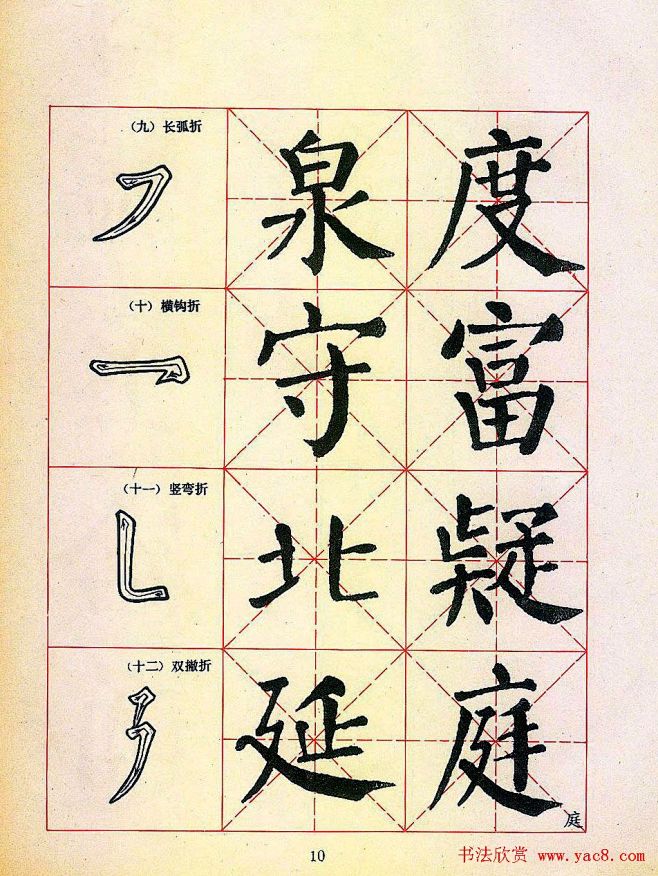 （九）长弧折
泉 度
（十）横钩折
守 富
（十一）竖弯折
北 疑
（十二）双撇折
延 庭
庭
10
书法欣赏 www.yac8.com